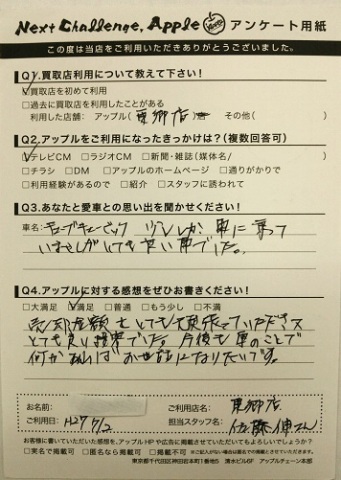 Next Challenge, Apple アンケート用紙
この度は当店をご利用いただきありがとうございました。
Q1.買取店利用について教えて下さい!
☑買取店を初めて利用
□過去に買取店を利用したことがある
利用した店舗: アップル( 東郷店 ) その他( )
Q2.アップルをご利用になったきっかけは?(複数回答可)
☑テレビCM □ラジオCM □新聞・雑誌(媒体名/ )
□チラシ □DM □アップルのホームページ □通りがかりで
□利用経験があるので □紹介 □スタッフに誘われて
Q3.あなたと愛車との思い出を聞かせください!
車名: 少ししか 車に乗って
いませんがとても良い車でした。
Q4.アップルに対する感想をぜひお書きください!
□大満足 ☑満足 □普通 □もう少し □不満
売却金額もとても頑張っていただき
とても良い 営業でした。今後も車のことで
何かあればお世話になりたいです。
お名前: ご利用店名: 東郷店
ご利用日: H27 7/2 担当スタッフ名: 佐藤伸さん
お客様に書いていただいた感想を、アップルHPや広告に掲載させていただいてもよろしいでしょうか?
□実名で掲載可 □匿名なら掲載可 □掲載不可 ※ご記入がない場合は匿名での掲載とさせていただきます。
東京都千代田区神田日本町1番地5 清水ビル6F アップルチェーン本部